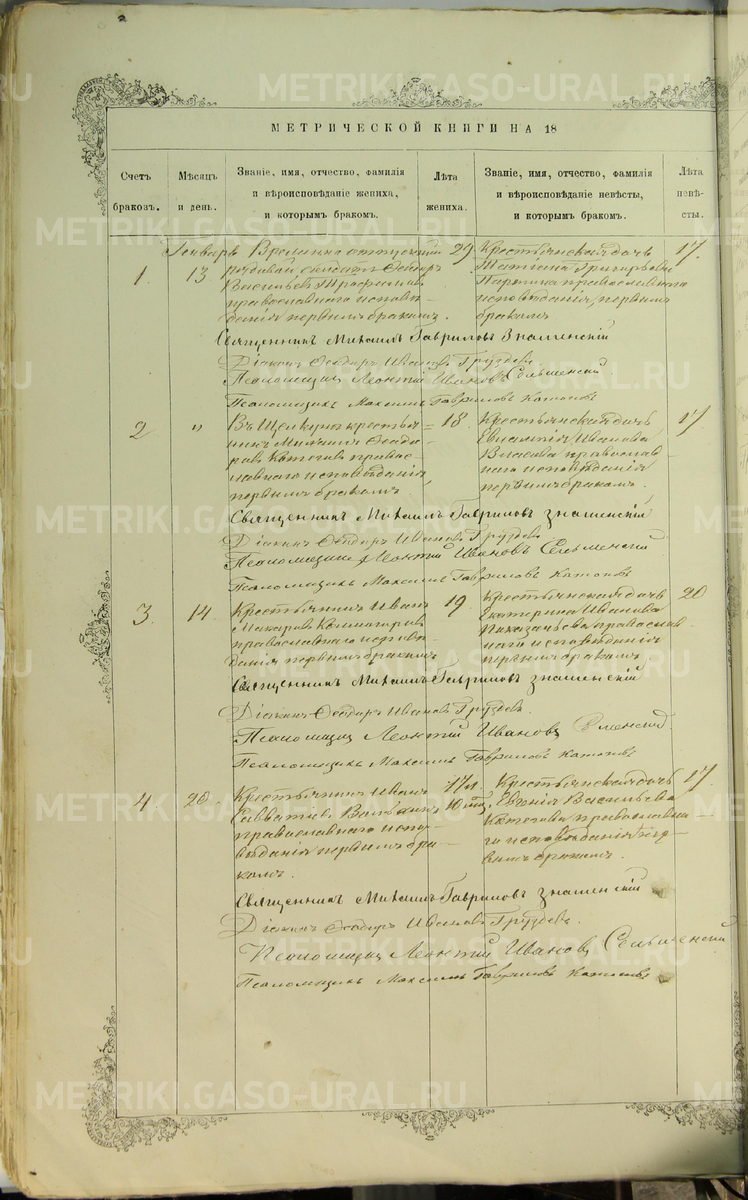 МЕТРИЧЕСКОЙ КНИГИ НА 18
Счетъ браковъ.
Мѣсяцъ и день.
Званіе, имя, отчество, фамилія и вѣроисповѣданіе жениха, и которымъ бракомъ.
Лѣта жениха.
Званіе, имя, отчество, фамилія и вѣроисповѣданіе невѣсты, и которымъ бракомъ.
Лѣта невѣсты.
Январь
1
13
Временно отпускной
рядовой солдатъ Ѳеодоръ
Васильевъ
православнаго исповѣ-
данія первымъ бракомъ.
29
Крестьянская дочь
Татіана Григорьева
православнаго
исповѣданія, первымъ
бракомъ
17
Священникъ Михаилъ Гавриловъ Знаменскій
Діаконъ Ѳеодоръ Ивановъ Груздевъ
Псаломщикъ Леонтій Ивановъ Сельменскій
Псаломщикъ Максимъ Гавриловъ Катаевъ
2
"
Въ Щелкунѣ крестья-
нинъ Михаилъ Ѳеодо-
ровъ Котеговъ правос-
лавнаго исповѣданія,
первымъ бракомъ.
18
Крестьянская дочь
Евлампія Иванова
Власова православ-
наго исповѣданія
первымъ бракомъ.
17
Священникъ Михаилъ Гавриловъ Знаменскій
Діаконъ Ѳеодоръ Ивановъ Груздевъ
Псаломщикъ Леонтій Ивановъ Сельменскій
Псаломщикъ Максимъ Гавриловъ Катаевъ
3
14
Крестьянинъ Иванъ
Макаровъ
православнаго исповѣ-
данія первымъ бракомъ
19
Крестьянская дочь
Екатерина Иванова
православ-
наго исповѣданія
первымъ бракомъ.
20
Священникъ Михаилъ Гавриловъ Знаменскій
Діаконъ Ѳеодоръ Ивановъ Груздевъ.
Псаломщикъ Леонтій Ивановъ Сельменскій
Псаломщикъ Максимъ Гавриловъ Катаевъ
4
20
Крестьянинъ Иванъ
Савватіевъ
православнаго испо-
вѣданія первымъ бра-
комъ.
17 л
10 мѣс.
Крестьянская дочь
Евгенія Васильева
Котегова православна-
го исповѣданія пер-
вымъ бракомъ.
17
Священникъ Михаилъ Гавриловъ Знаменскій
Діаконъ Ѳеодоръ Ивановъ Груздевъ
Псаломщикъ Леонтій Ивановъ Сельменскій
Псаломщикъ Максимъ Гавриловъ Катаевъ
METRIKI.GASO-URAL.RU